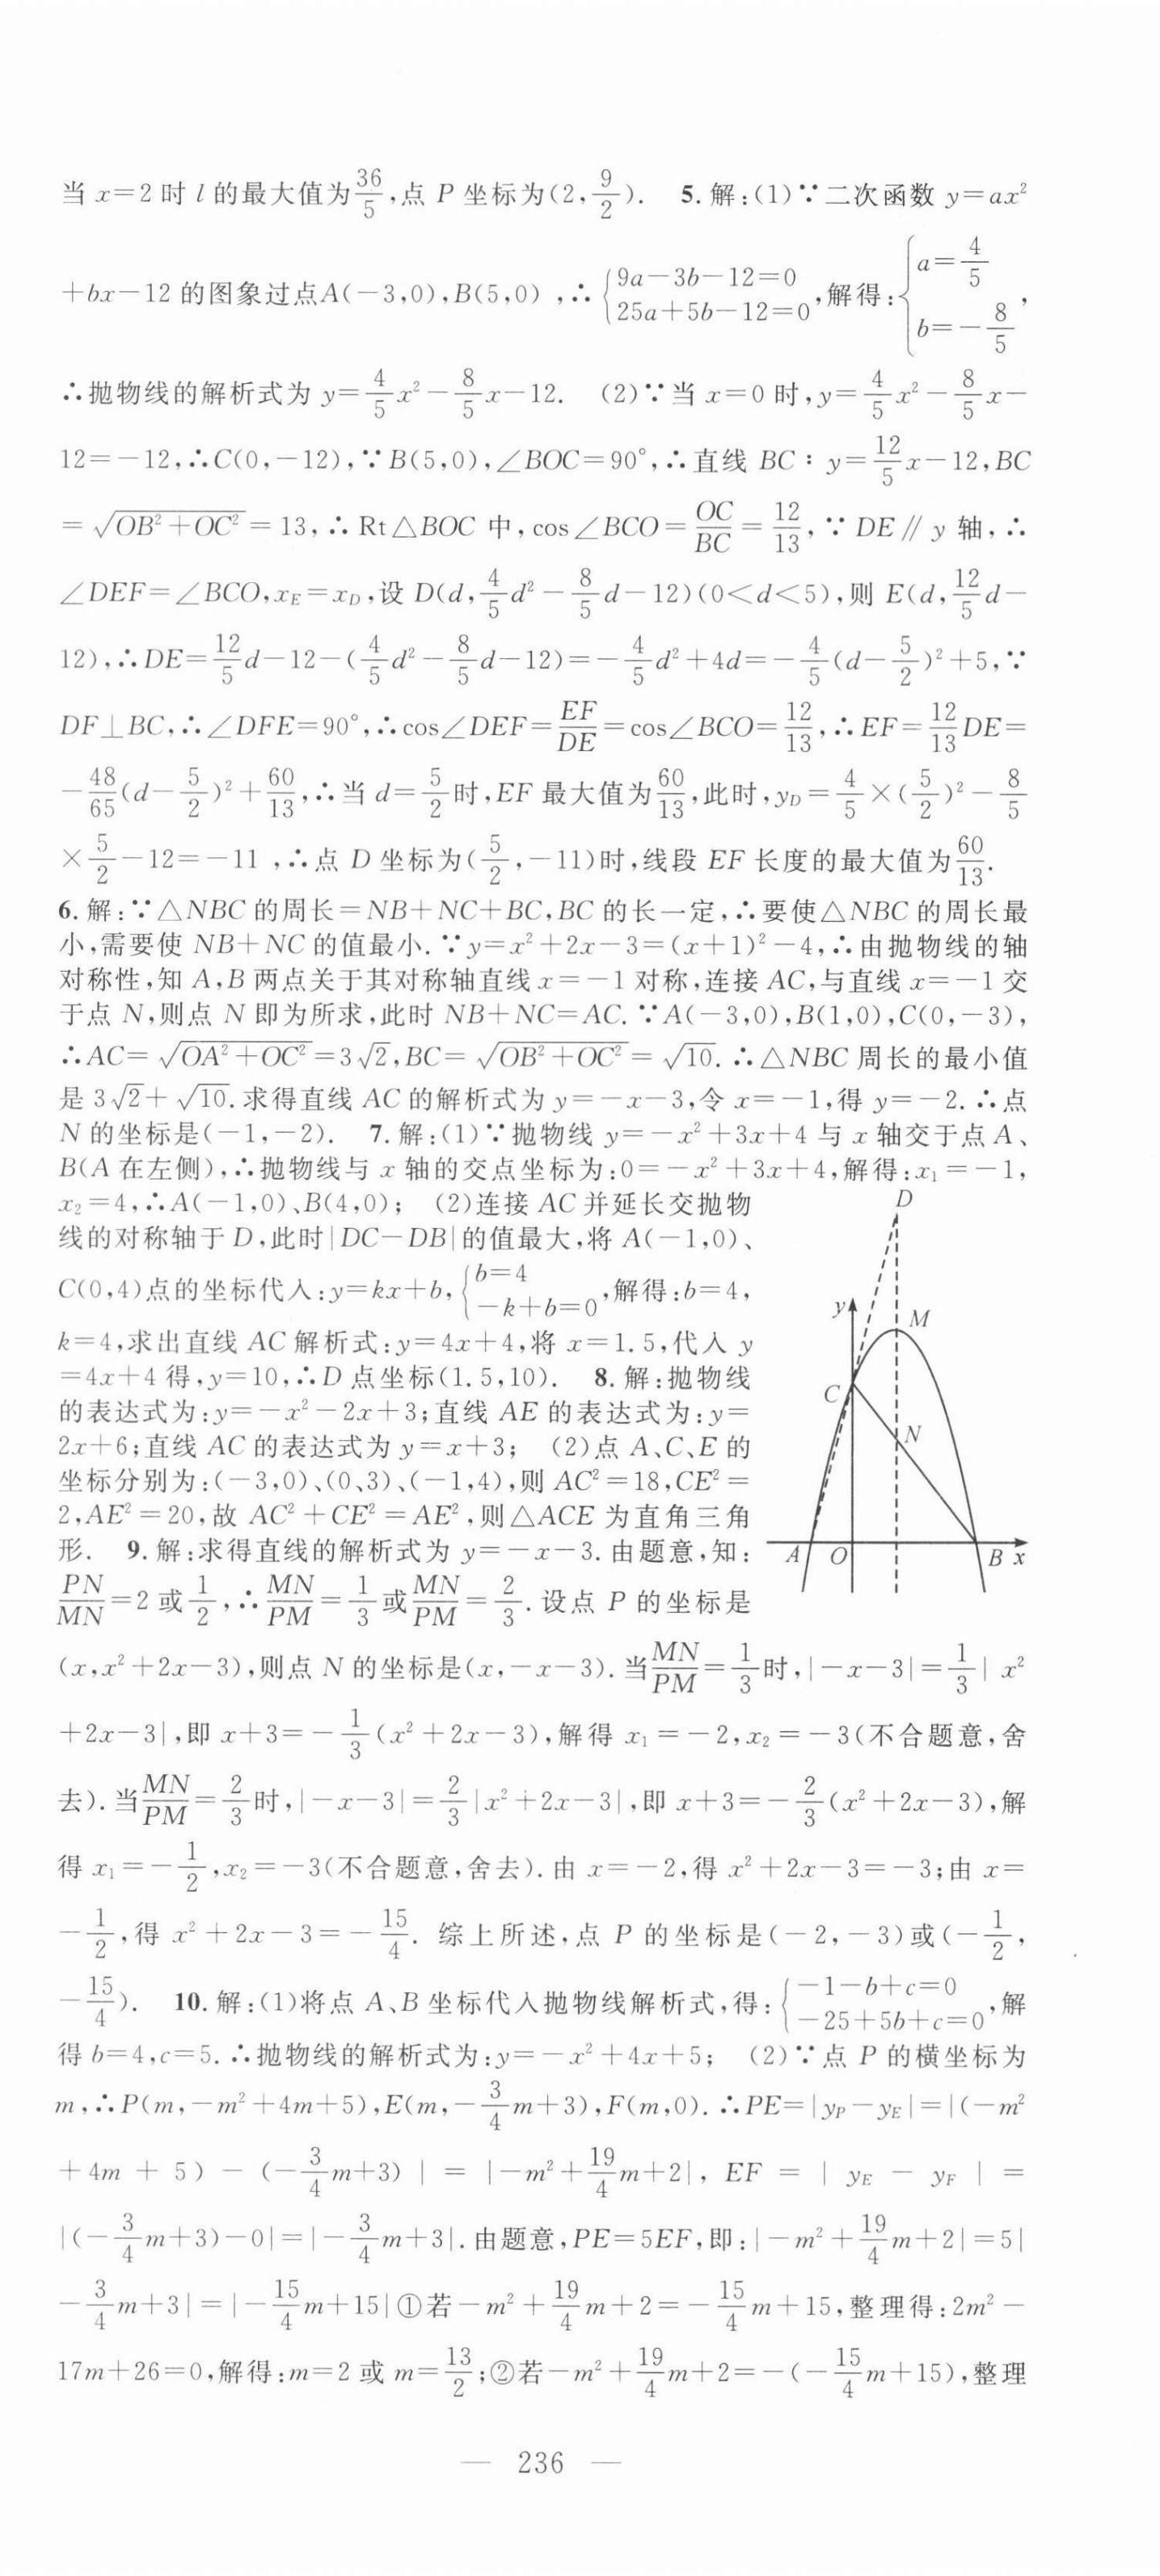 当 x=2 时 l 的最大值为36/5,点 P 坐标为(2,9/2). 5.解:(1)∵二次函数 y=ax²
+bx-12 的图象过点A(-3,0),B(5,0) ,∴{9a-3b-12=0 25a+5b-12=0,解得:{a=4/5 b=-8/5,
∴抛物线的解析式为 y=4/5x²-8/5x-12. (2)∵当 x=0 时,y=4/5x²-8/5x-
12=-12,∴C(0,-12),∵B(5,0),∠BOC=90°,∴直线 BC:y=12/5x-12,BC
=√(OB²+OC²)=13,∴Rt△BOC 中,cos∠BCO=OC/BC=12/13,∵DE∥y 轴,∴
∠DEF=∠BCO,x_E=x_D,设 D(d,4/5d²-8/5d-12)(0<d<5),则 E(d,12/5d-
12),∴DE=12/5d-12-(4/5d²-8/5d-12)=-4/5d²+4d=-4/5(d-5/2)²+5,∵
DF⊥BC,∴∠DFE=90°,∴cos∠DEF=EF/DE=cos∠BCO=12/13,∴EF=12/13DE=
-48/65(d-5/2)²+60/13,∴当 d=5/2时,EF 最大值为60/13,此时,y_D=4/5×(5/2)²-8/5
×5/2-12=-11 ,∴点 D 坐标为(5/2,-11)时,线段 EF 长度的最大值为60/13.
6.解:∵△NBC 的周长=NB+NC+BC,BC 的长一定,∴要使△NBC 的周长最
小,需要使 NB+NC 的值最小.∵y=x²+2x-3=(x+1)²-4,∴由抛物线的轴
对称性,知 A,B 两点关于其对称轴直线 x=-1 对称,连接 AC,与直线 x=-1 交
于点 N,则点 N 即为所求,此时 NB+NC=AC.∵A(-3,0),B(1,0),C(0,-3),
∴AC=√(OA²+OC²)=3√2,BC=√(OB²+OC²)=√10.∴△NBC 周长的最小值
是 3√2+√10.求得直线 AC 的解析式为 y=-x-3,令 x=-1,得 y=-2.∴点
N 的坐标是(-1,-2). 7.解:(1)∵抛物线 y=-x²+3x+4 与 x 轴交于点 A、
B(A 在左侧),∴抛物线与 x 轴的交点坐标为:0=-x²+3x+4,解得:x₁=-1,
x₂=4,∴A(-1,0)、B(4,0); (2)连接 AC 并延长交抛物
线的对称轴于 D,此时|DC-DB|的值最大,将 A(-1,0)、
C(0,4)点的坐标代入:y=kx+b,{b=4 -k+b=0,解得:b=4,
k=4,求出直线 AC 解析式:y=4x+4,将 x=1.5,代入 y
=4x+4 得,y=10,∴D 点坐标(1.5,10). 8.解:抛物线
的表达式为:y=-x²-2x+3;直线 AE 的表达式为:y=
2x+6;直线 AC 的表达式为 y=x+3; (2)点 A、C、E 的
坐标分别为:(-3,0)、(0、3)、(-1,4),则 AC²=18,CE²=
2,AE²=20,故 AC²+CE²=AE²,则△ACE 为直角三角
形. 9.解:求得直线的解析式为 y=-x-3.由题意,知:
PN/MN=2 或1/2,∴MN/PM=1/3或MN/PM=2/3.设点 P 的坐标是
D
y
M
C
N
A
O
B
x
(x,x²+2x-3),则点 N 的坐标是(x,-x-3).当MN/PM=1/3时,|-x-3|=1/3|x²
+2x-3|,即 x+3=-1/3(x²+2x-3),解得 x₁=-2,x₂=-3(不合题意,舍
去).当MN/PM=2/3时,|-x-3|=2/3|x²+2x-3|,即 x+3=-2/3(x²+2x-3),解
得 x₁=-1/2,x₂=-3(不合题意,舍去).由 x=-2,得 x²+2x-3=-3;由 x=
-1/2,得 x²+2x-3=-15/4. 综上所述,点 P 的坐标是(-2,-3)或(-1/2,
-15/4). 10.解:(1)将点 A、B 坐标代入抛物线解析式,得:{-1-b+c=0 -25+5b+c=0,解
得 b=4,c=5.∴抛物线的解析式为:y=-x²+4x+5; (2)∵点 P 的横坐标为
m,∴P(m,-m²+4m+5),E(m,-3/4m+3),F(m,0).∴PE=|y_P-y_E|=|(-m²
+4m+5)-(-3/4m+3)|=|-m²+19/4m+2|,EF=|y_E-y_F|=
|(-3/4m+3)-0|=|-3/4m+3|.由题意,PE=5EF,即:|-m²+19/4m+2|=5|
-3/4m+3|=|-15/4m+15|①若-m²+19/4m+2=-15/4m+15,整理得:2m²-
17m+26=0,解得:m=2 或 m=13/2;②若-m²+19/4m+2=-(-15/4m+15),整理
— 236 —